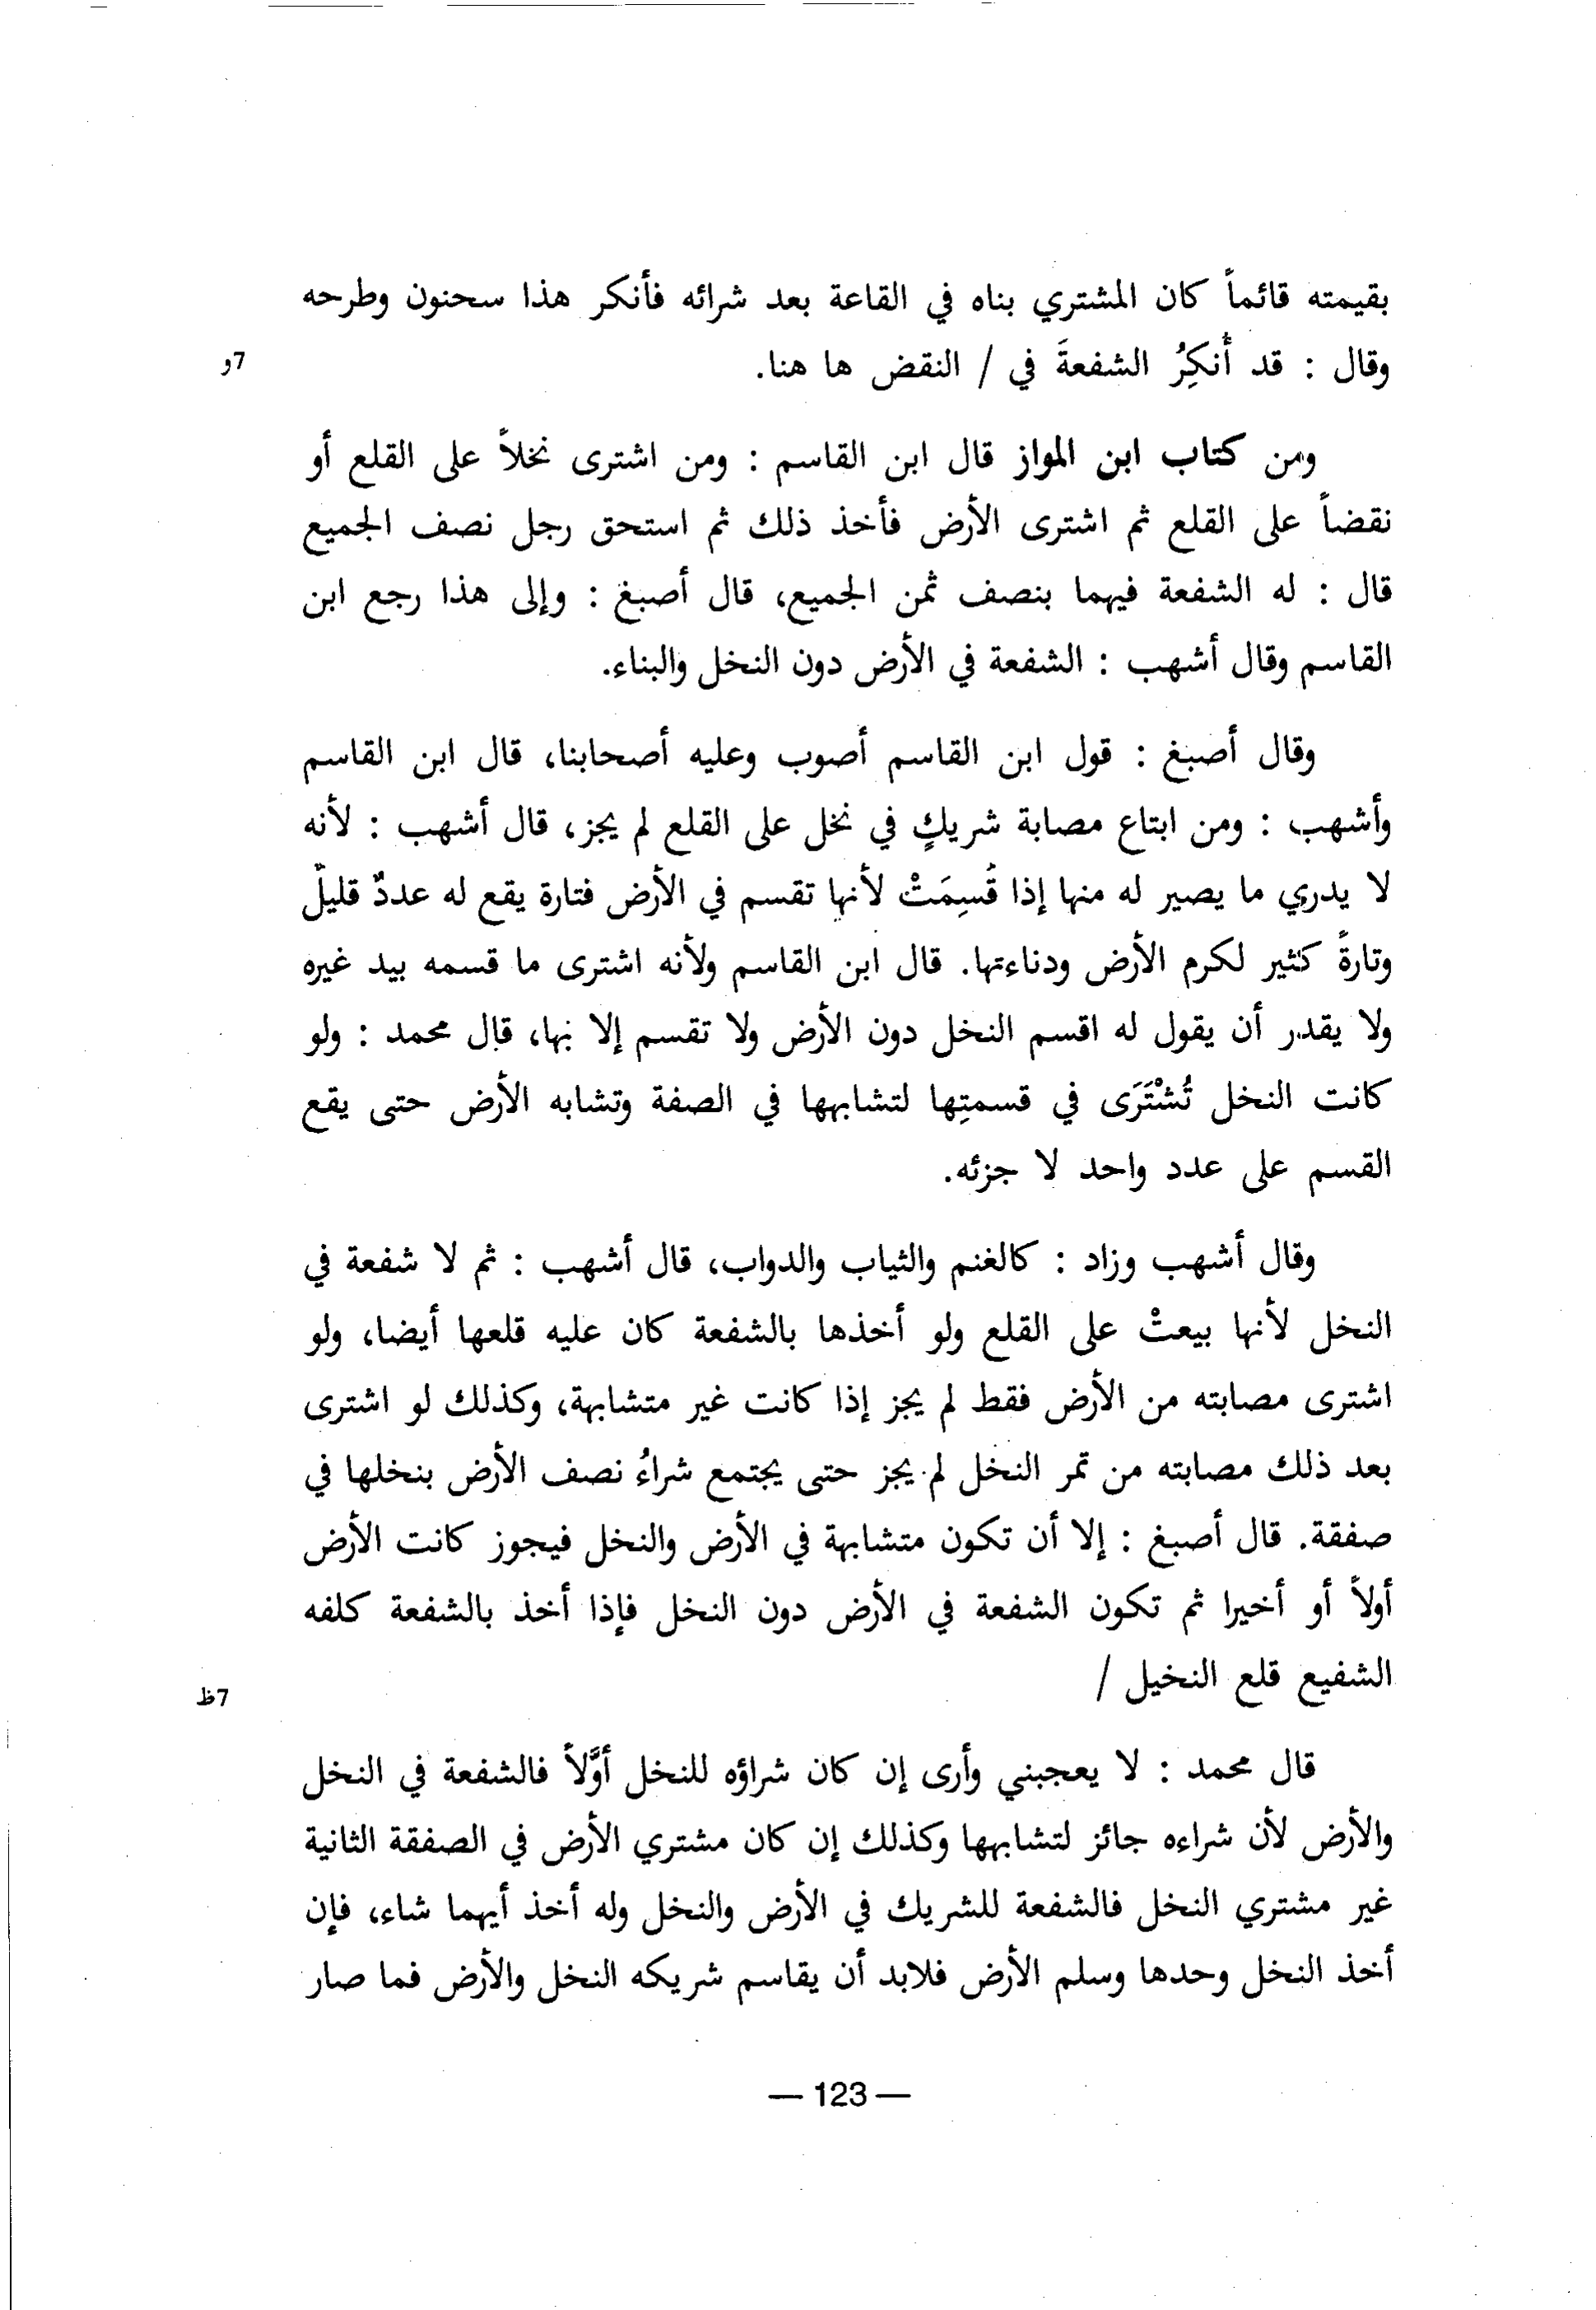 بقيمته قائماً كان المشتري بناه في القاعة بعد شرائه فأنكر هذا سحنون وطرحه
وقال : قد أُنكِرُ الشفعةَ في / النقض ها هنا.
7و
ومن كتاب ابن المواز قال ابن القاسم : ومن اشترى نخلاً على القلع أو
نقضاً على القلع ثم اشترى الأرض فأخذ ذلك ثم استحق رجل نصف الجميع
قال : له الشفعة فيهما بنصف ثمن الجميع، قال أصبغ : وإلى هذا رجع ابن
القاسم وقال أشهب : الشفعة في الأرض دون النخل والبناء.
وقال أصبغ : قول ابن القاسم أصوب وعليه أصحابنا، قال ابن القاسم
وأشهب : ومن ابتاع مصابة شريكٍ في نخل على القلع لم يجز، قال أشهب : لأنه
لا يدري ما يصير له منها إذا قُسِمَتْ لأنها تقسم في الأرض فتارة يقع له عددٌ قليلٌ
وتارةً كثير لكرم الأرض ودناءتها. قال ابن القاسم ولأنه اشترى ما قسمه بيد غيره
ولا يقدر أن يقول له اقسم النخل دون الأرض ولا تقسم إلا بها، قال محمد : ولو
كانت النخل تُشْتَرَى في قسمتِها لتشابهها في الصفة وتشابه الأرض حتى يقع
القسم على عدد واحد لا جزئه.
وقال أشهب وزاد : كالغنم والثياب والدواب، قال أشهب : ثم لا شفعة في
النخل لأنها بيعتْ على القلع ولو أخذها بالشفعة كان عليه قلعها أيضا، ولو
اشترى مصابته من الأرض فقط لم يجز إذا كانت غير متشابهة، وكذلك لو اشترى
بعد ذلك مصابته من تمر النخل لم يجز حتى يجتمع شراءُ نصف الأرض بنخلها في
صفقة. قال أصبغ : إلا أن تكون متشابهة في الأرض والنخل فيجوز كانت الأرض
أولاً أو أخيرا ثم تكون الشفعة في الأرض دون النخل فإذا أخذ بالشفعة كلفه
الشفيع قلع النخيل /
7ظ
قال محمد : لا يعجبني وأرى إن كان شراؤه للنخل أوَّلاً فالشفعة في النخل
والأرض لأن شراءه جائز لتشابهها وكذلك إن كان مشتري الأرض في الصفقة الثانية
غير مشتري النخل فالشفعة للشريك في الأرض والنخل وله أخذ أيهما شاء، فإن
أخذ النخل وحدها وسلم الأرض فلابد أن يقاسم شريكه النخل والأرض فما صار
— 123 —